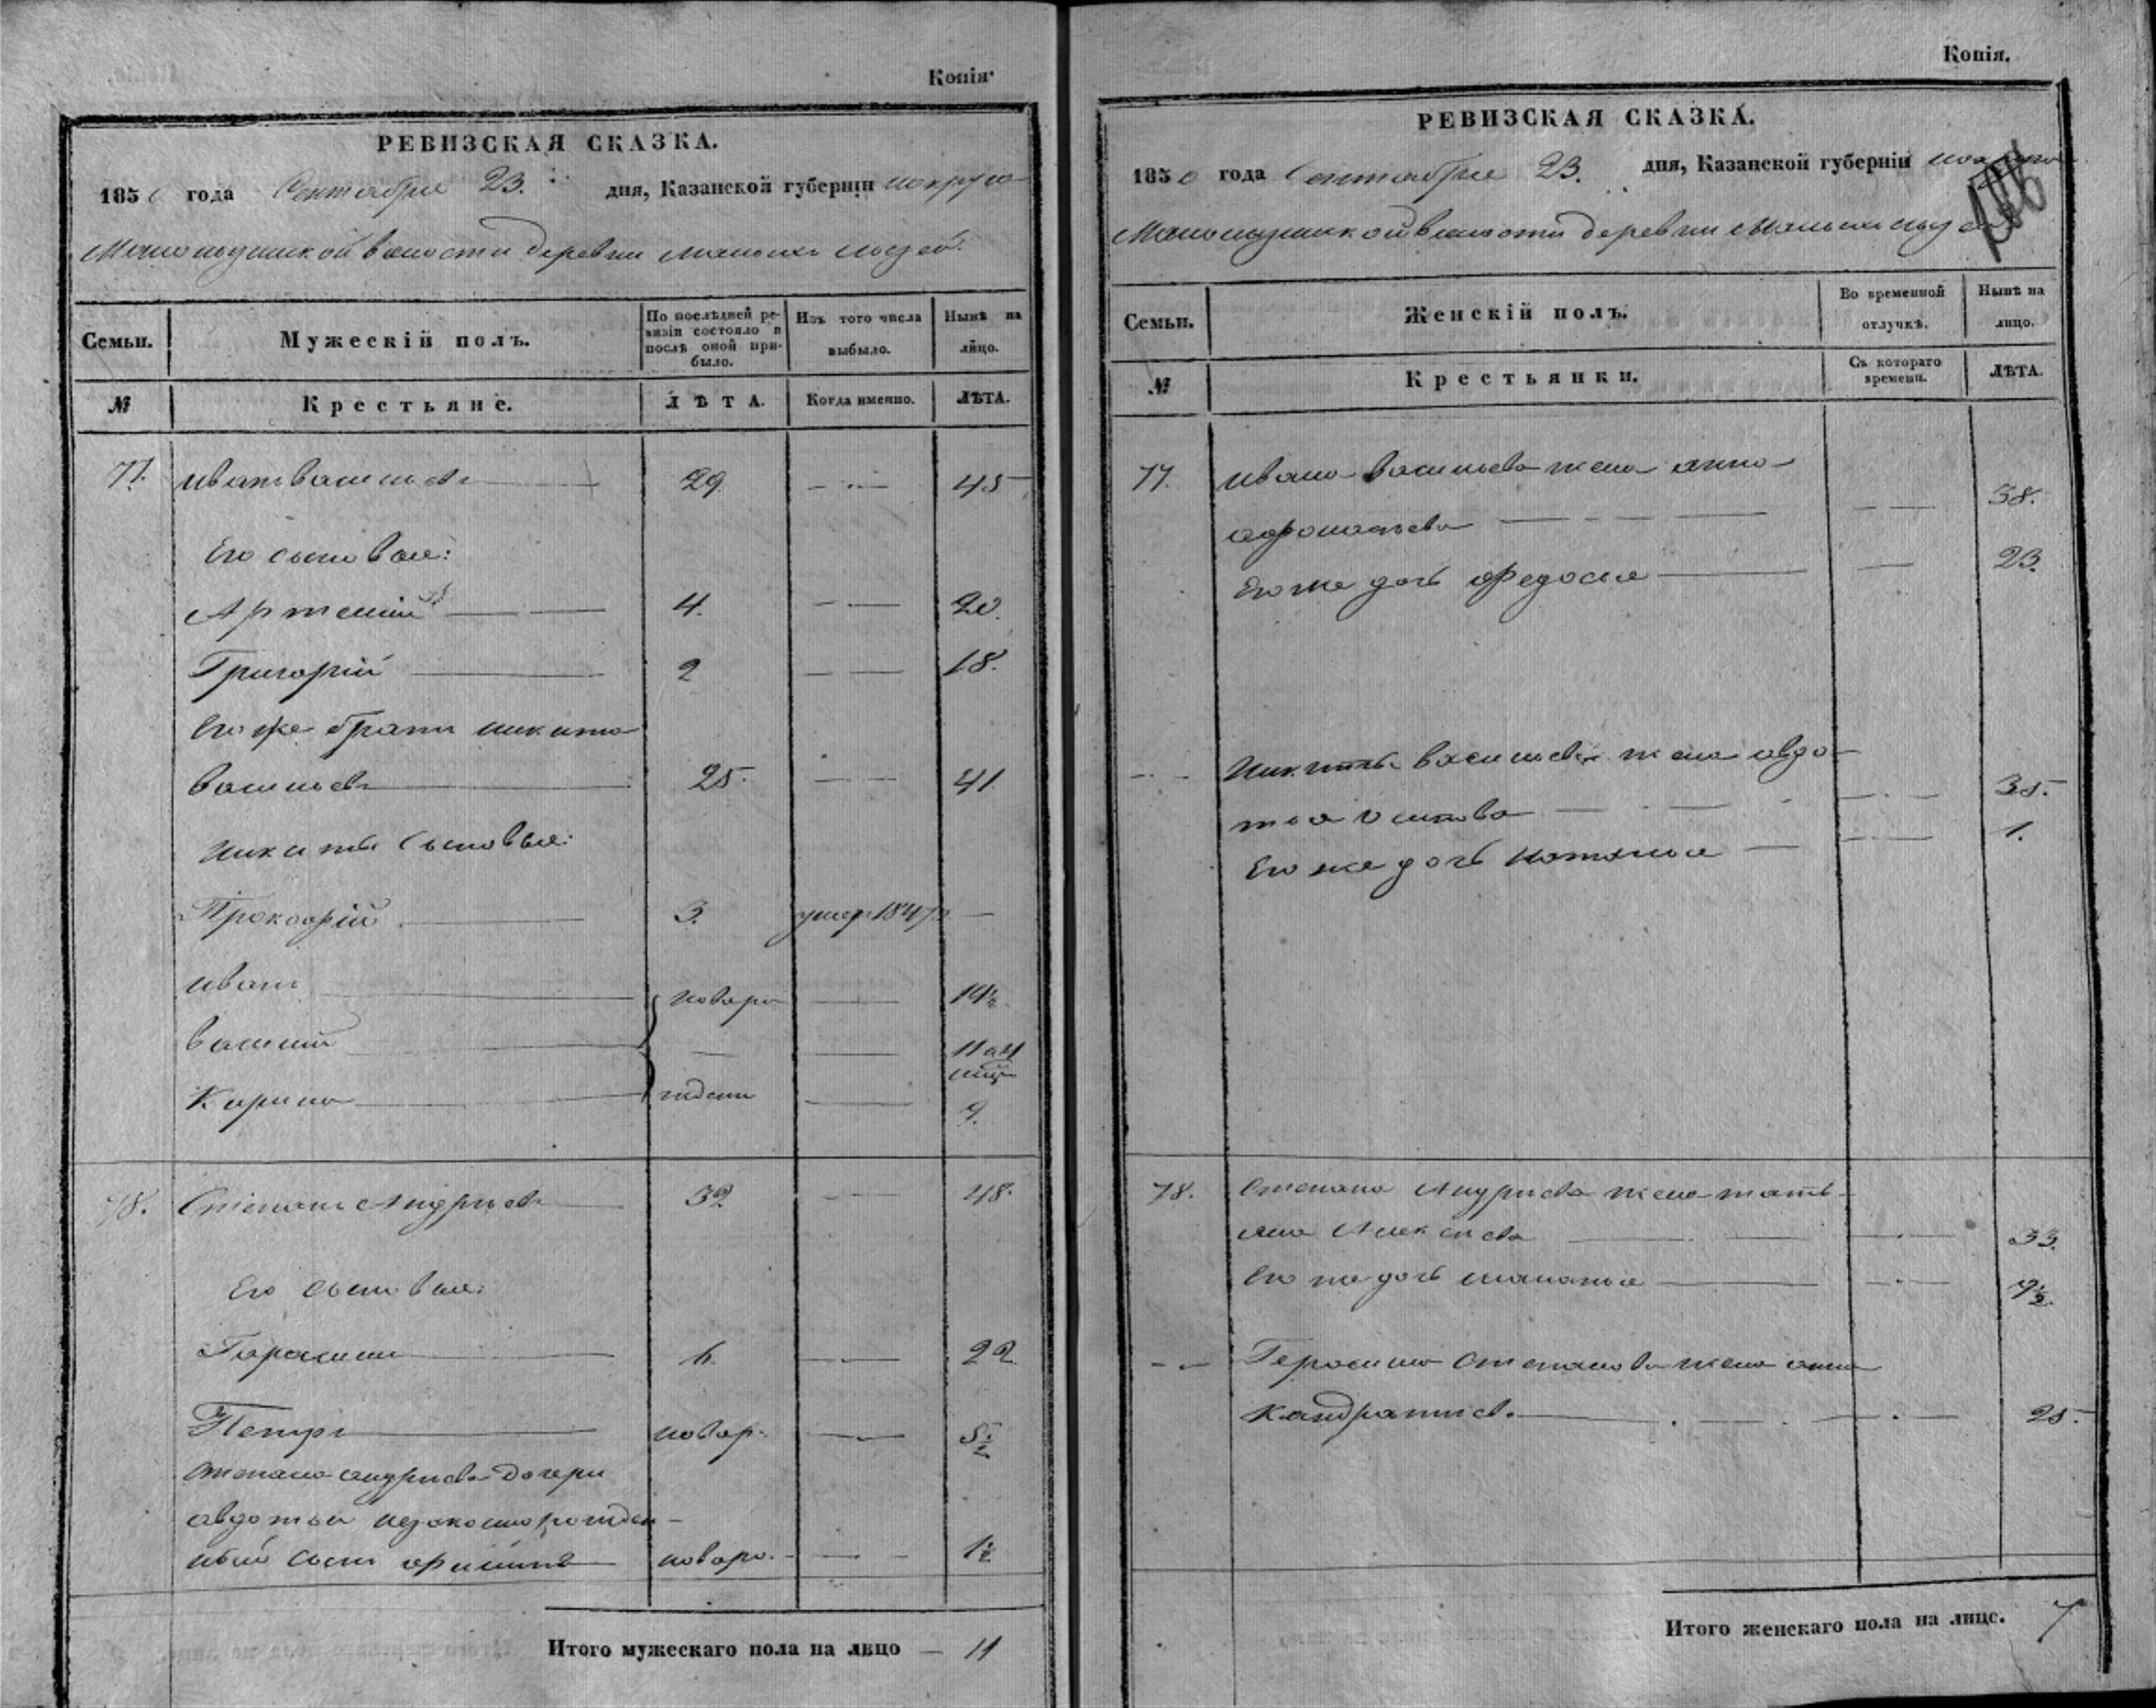 Копія.
РЕВИЗСКАЯ СКАЗКА.
1850 года Сентября 23. дня, Казанской губерніи
волости деревни
Семьи.
Мужескій полъ.
По послѣдней ревизіи состояло и послѣ оной прибыло.
Изъ того числа выбыло.
Нынѣ на лицо.
№
Крестьяне.
ЛѢТА.
Когда именно.
ЛѢТА.
77. Иванъ Васильевъ 29. 45
Его сыновья:
Артемій 4. 20.
Григорій 2 18.
Его же братъ Никита
Васильевъ 25. 41
Никиты сыновья:
Прокофій 3. умер. 1847
Иванъ новоро 14½
Василій 11 и 4
мѣс
Карпъ ждены 9.
78. Степанъ Андреевъ 32 48.
Его сыновья:
Гарасимъ 6. 22
Петръ новор. 8½
Степана Андреева дочери
Авдотьи незаконно рожден-
ный сынъ Филипъ новоро. 1½
Итого мужескаго пола на лицо — 11
Копія.
РЕВИЗСКАЯ СКАЗКА.
1850 года Сентября 23. дня, Казанской губерніи
волости деревни
Семьи.
Женскій полъ.
Во временной отлучкѣ.
Нынѣ на лицо.
№
Крестьянки.
Съ котораго времени.
ЛѢТА.
77. Ивана Васильева жена Анна
Афонасьева 38.
Его же дочь Федосья 23.
Никиты Васильева жена Авдо-
тья Осипова 35.
Его же дочь Наталья 1.
78. Степана Андреева жена Татья-
яна Алексѣева 33.
Его же дочь Маланья 9½.
Герасима Степанова жена Анна
Кандратьева 25.
Итого женскаго пола на лице. 7